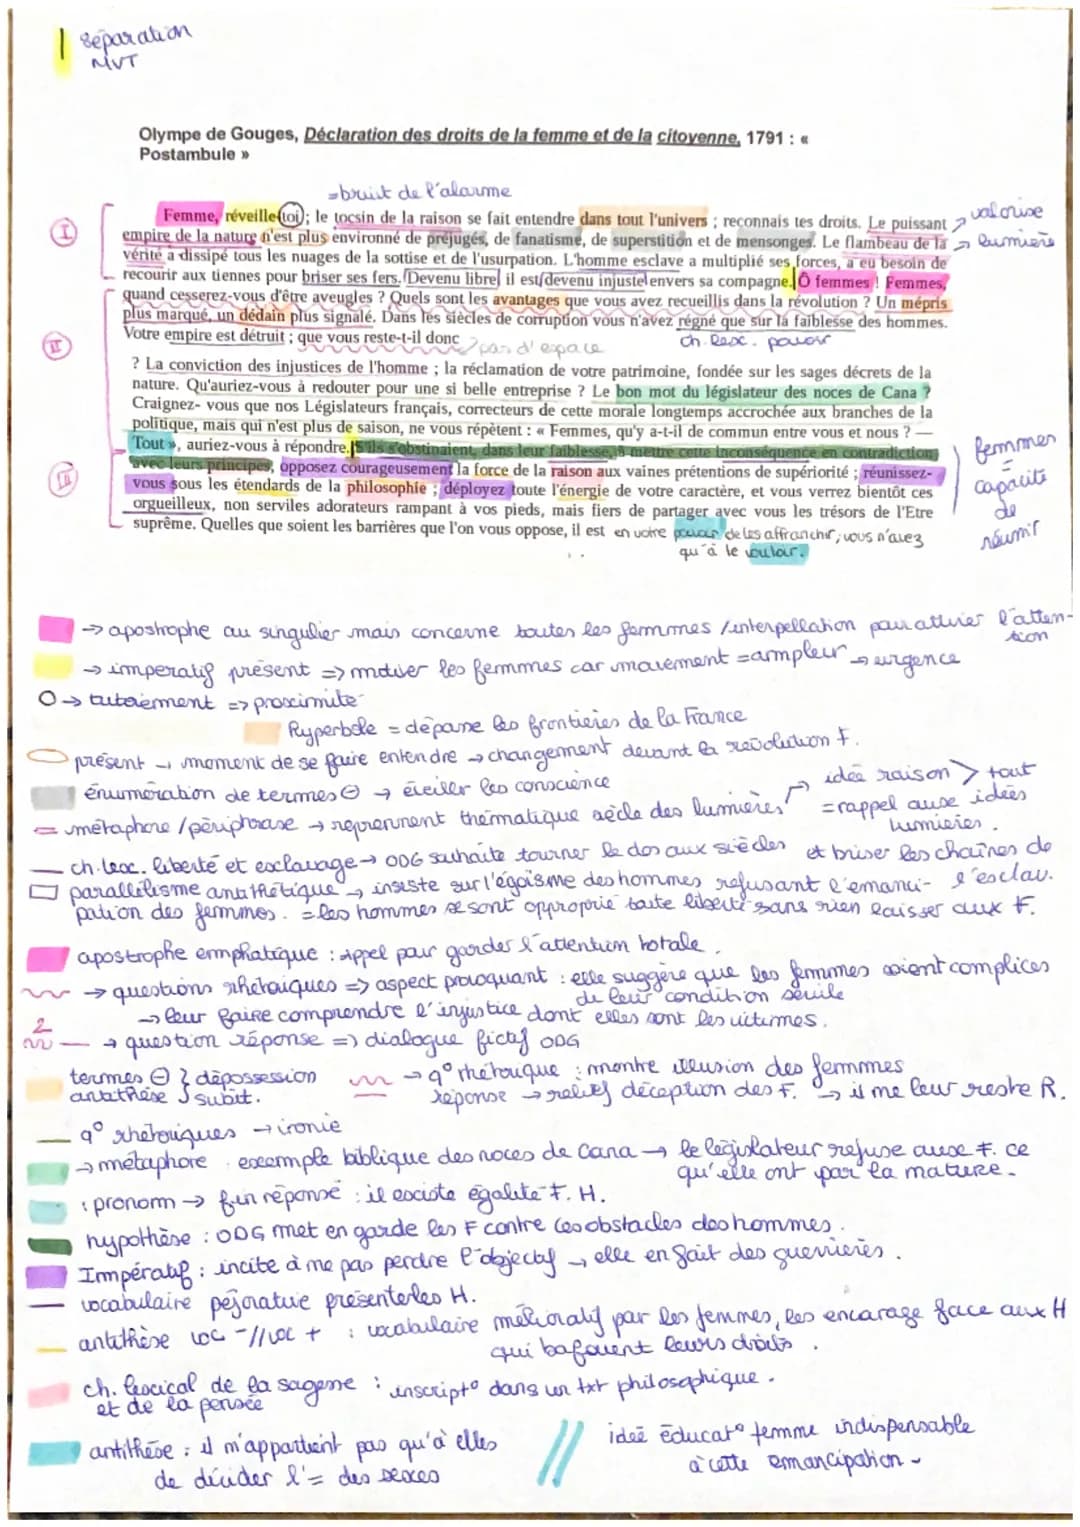 Séparation
MVT
Olympe de Gouges, Déclaration des droits de la femme et de la citoyenne, 1791 : «
Postambule »
=bruit de l'alarme
Femme, réveille-toi ; le tocsin de la raison se fait entendre dans tout l'univers ; reconnais tes droits. Le puissant
→ valorise
I
empire de la nature n'est plus environné de préjugés, de fanatisme, de superstition et de mensonges. Le flambeau de la
→ lumière
vérité a dissipé tous les nuages de la sottise et de l'usurpation. L'homme esclave a multiplié ses forces, a eu besoin de
recourir aux tiennes pour briser ses fers. Devenu libre, il est devenu injuste envers sa compagne. Ô femmes ! Femmes,
quand cesserez-vous d'être aveugles ? Quels sont les avantages que vous avez recueillis dans la révolution ? Un mépris
plus marqué, un dédain plus signalé. Dans les siècles de corruption vous n'avez régné que sur la faiblesse des hommes.
II
Votre empire est détruit ; que vous reste-t-il donc
pas d'espace
ch. lexc. pouvoir
? La conviction des injustices de l'homme ; la réclamation de votre patrimoine, fondée sur les sages décrets de la
nature. Qu'auriez-vous à redouter pour une si belle entreprise ? Le bon mot du législateur des noces de Cana ?
Craignez- vous que nos Législateurs français, correcteurs de cette morale longtemps accrochée aux branches de la
politique, mais qui n'est plus de saison, ne vous répètent : « Femmes, qu'y a-t-il de commun entre vous et nous ? —
Tout », auriez-vous à répondre. S'ils s'obstinaient, dans leur faiblesse, à mettre cette inconséquence en contradiction
III
avec leurs principes, opposez courageusement la force de la raison aux vaines prétentions de supériorité ; réunissez-
vous sous les étendards de la philosophie ; déployez toute l'énergie de votre caractère, et vous verrez bientôt ces
orgueilleux, non serviles adorateurs rampant à vos pieds, mais fiers de partager avec vous les trésors de l'Etre
suprême. Quelles que soient les barrières que l'on vous oppose, il est en votre pouvoir de les affranchir ; vous n'avez
qu'à le vouloir.
femmes
=
capacité
de
réunir
→ apostrophe au singulier mais concerne toutes les femmes / interpellation pour attirer l'atten-
tion
→ impératif présent => motiver les femmes car mouvement = ampleur → urgence
O → tutoiement => proximité
hyperbole = dépasse les frontières de la France
présent → moment de se faire entendre → changement devant la révolution F.
énumération de termes ⊖ → éveiller les conscience
métaphore / périphrase → reprennent thématique siècle des lumières
→ idée raison > tout
= rappel aux idées
lumières.
ch. lexc. liberté et esclavage → ODG souhaite tourner le dos aux siècles et briser les chaînes de
l'esclav.
parallélisme antithétique → insiste sur l'égoïsme des hommes refusant l'émanci-
pation des femmes. = les hommes se sont approprié toute liberté sans rien laisser aux F.
apostrophe emphatique : appel pour garder l'attention totale.
→ questions rhétoriques => aspect provoquant : elle suggère que les femmes soient complices
de leur condition servile
→ leur faire comprendre l'injustice dont elles sont les victimes.
2
→ question réponse => dialogue fictif ODG
termes ⊖ } dépossession
antithèse } subit.
→ q° rhétorique : montre illusion des femmes
réponse → relief déception des F. → il me leur reste R.
q° rhétoriques → ironie
→ métaphore exemple biblique des noces de Cana → le législateur refuse aux F. ce
qu'elle ont par la nature.
: pronom → fin réponse : il existe égalité F. H.
hypothèse : ODG met en garde les F contre les obstacles des hommes.
Impératif : incite à me pas perdre l'objectif → elle en fait des guerrières.
vocabulaire péjorative présenter les H.
antithèse voc -//voc + : vocabulaire mélioratif par les femmes, les encourage face aux H
qui bafouent leurs droits.
ch. lexical de la sagesse : inscript° dans un txt philosophique.
et de la pensée
antithèse : il n'appartient pas qu'à elles
de décider l'= des sexes
// idée éducat° femme indispensable
à cette émancipation.